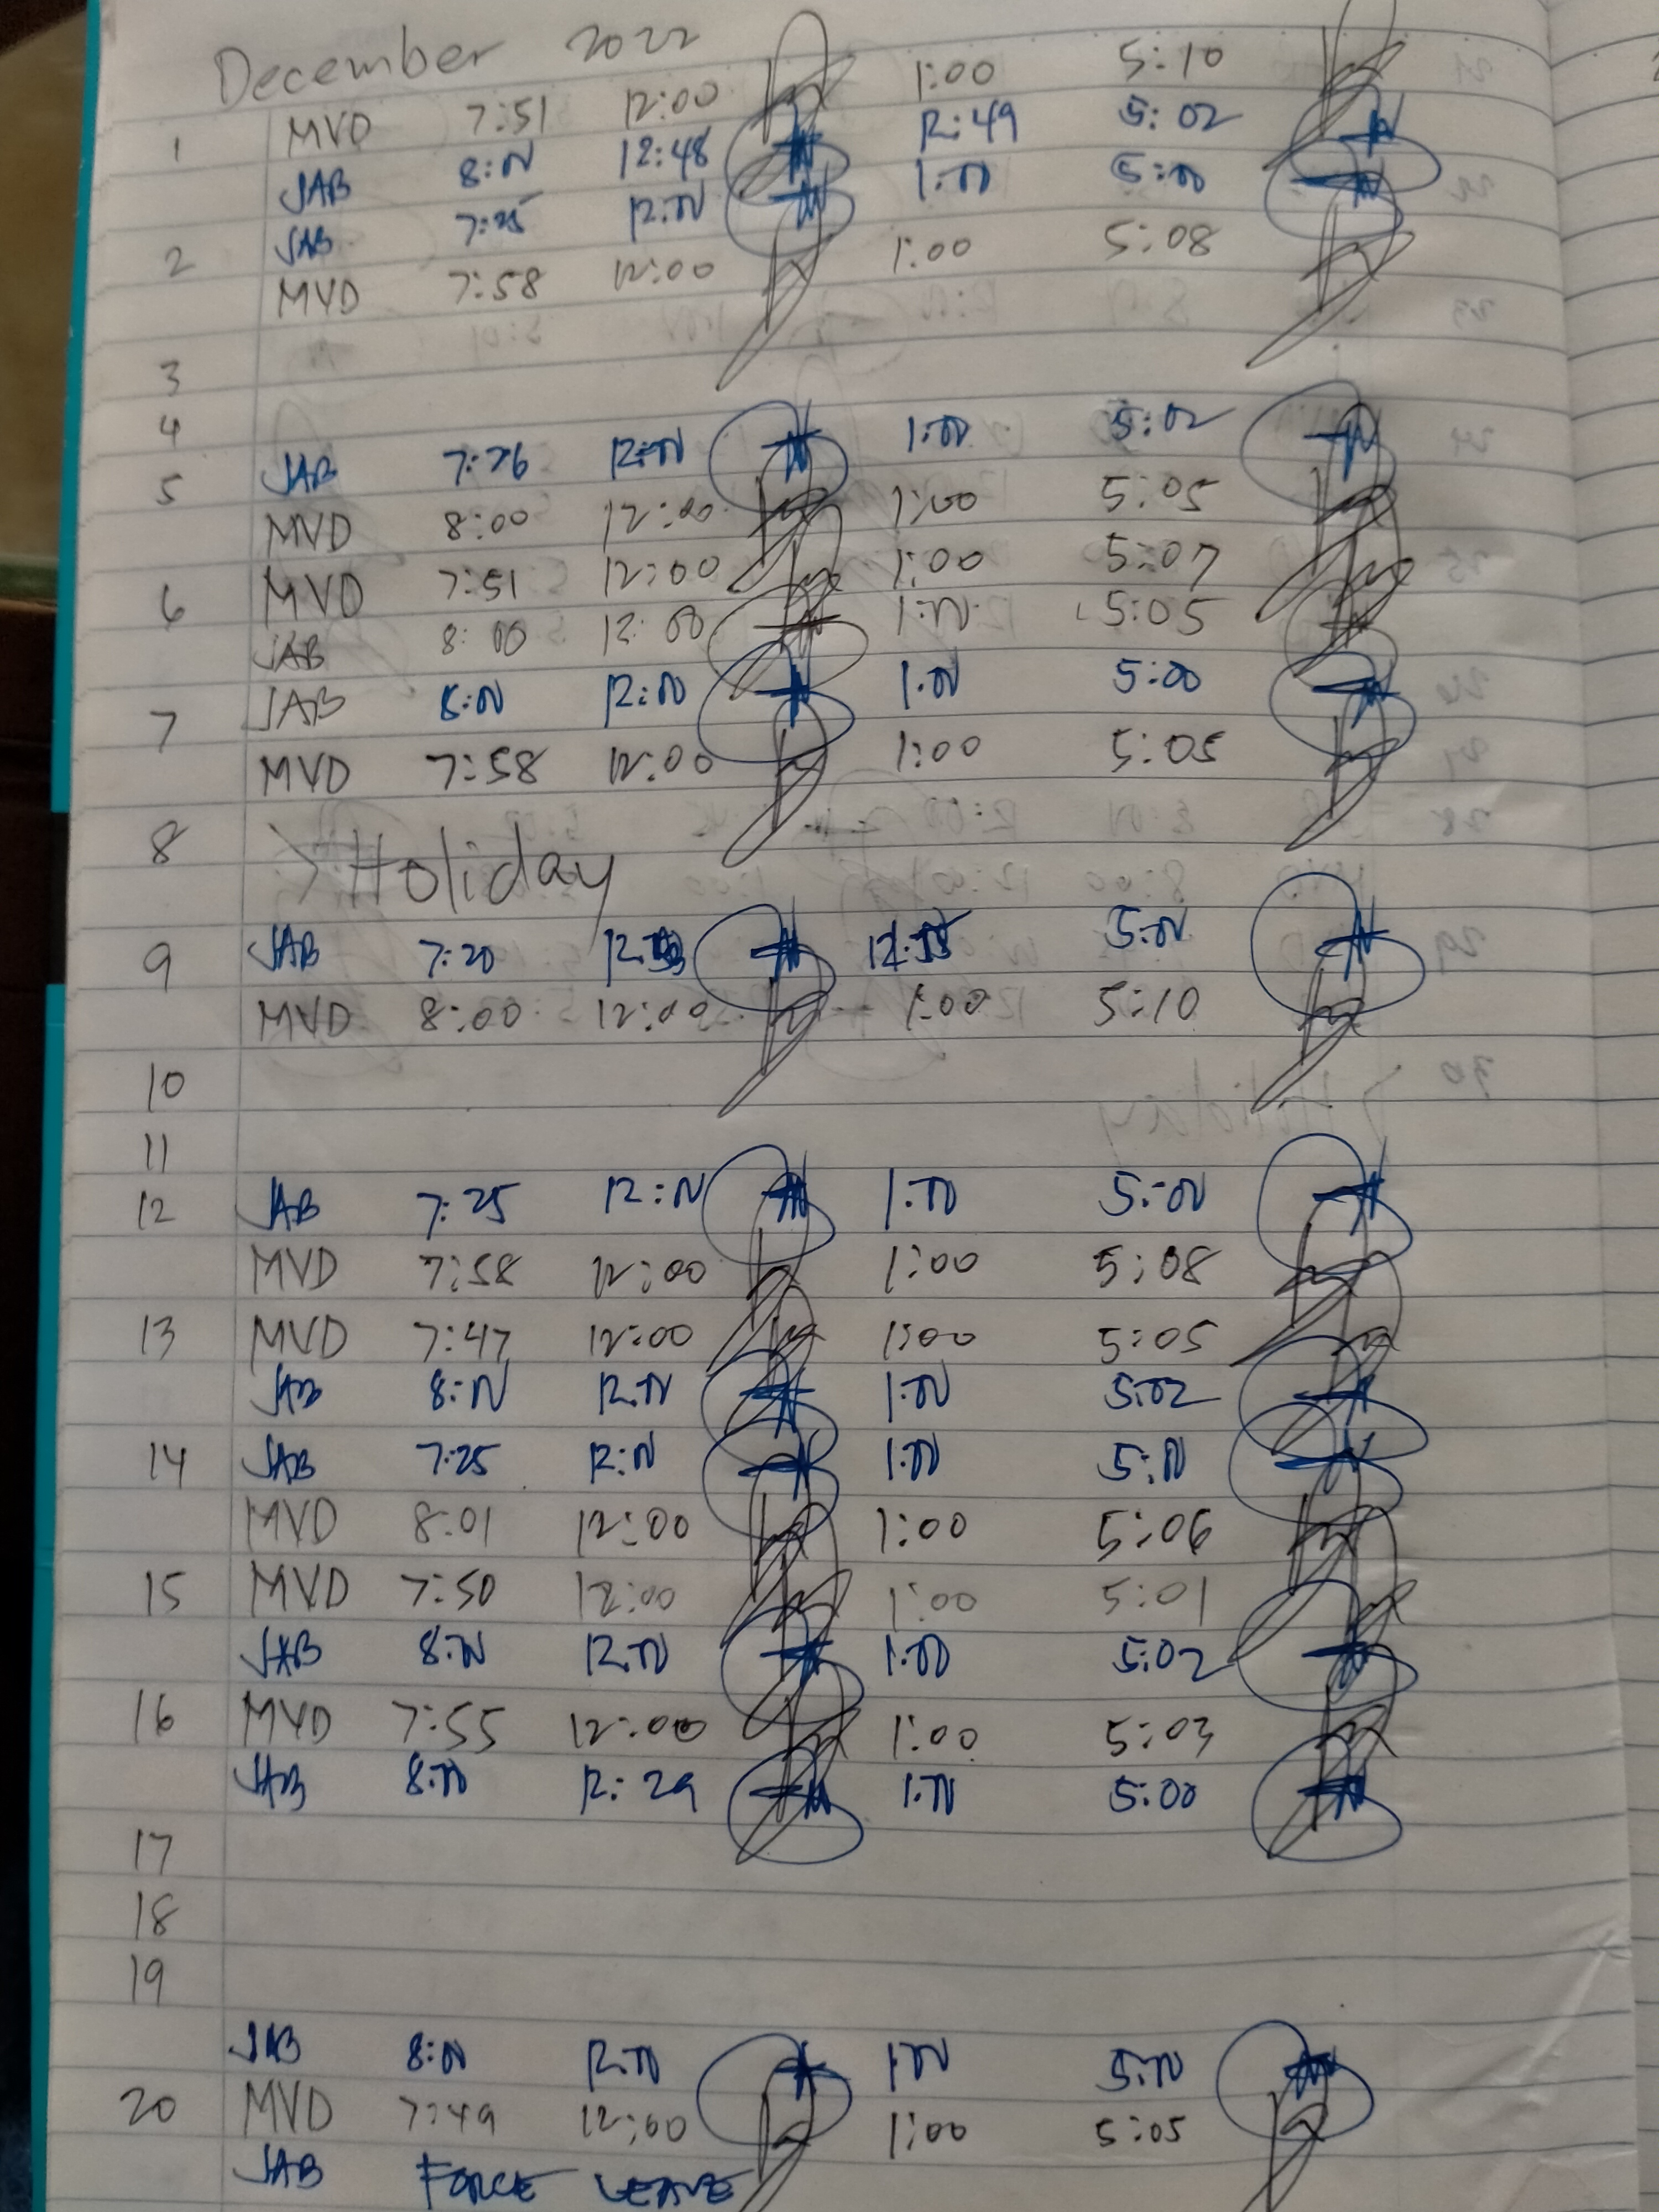 December 2022
1 MVD 7:51 12:00 1:00 5:10
JAB 8:00 12:48 12:49 5:02
JAB 7:25 12:00 1:00 5:00
2 MVD 7:58 12:00 1:00 5:08
3
4
5 JAB 7:26 12:00 1:00 5:02
MVD 8:00 12:00 1:00 5:05
6 MVD 7:51 12:00 1:00 5:07
JAB 8:00 12:00 1:00 5:05
7 JAB 8:00 12:00 1:00 5:00
MVD 7:58 12:00 1:00 5:05
8 > Holiday
9 JAB 7:20 5:00
MVD 8:00 12:00 1:00 5:10
10
11
12 JAB 7:25 12:00 1:00 5:00
MVD 7:58 12:00 1:00 5:08
13 MVD 7:47 12:00 1:00 5:05
JAB 8:00 12:00 1:00 5:02
14 JAB 7:25 12:00 1:00 5:00
MVD 8:01 12:00 1:00 5:06
15 MVD 7:50 12:00 1:00 5:01
JAB 8:00 12:00 1:00 5:02
16 MVD 7:55 12:00 1:00 5:03
JAB 8:00 12:29 1:00 5:00
17
18
19
JAB 8:00 12:00 1:00 5:00
20 MVD 7:49 12:00 1:00 5:05
JAB FORCE LEAVE